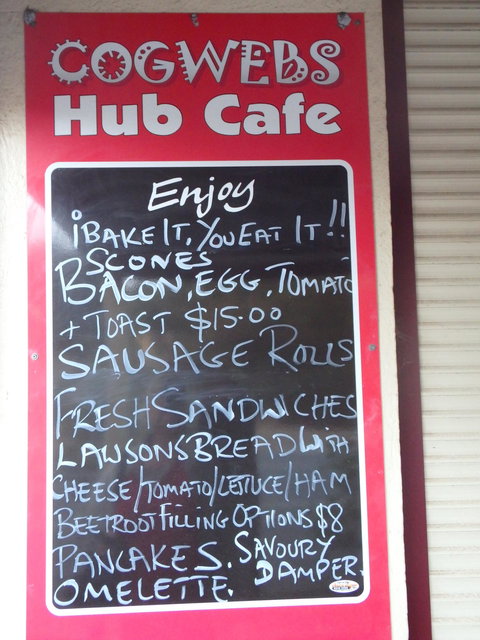 COGWEBS
Hub Cafe
Enjoy
iBAKE IT, YOU EAT IT!!
SCONES
BACON, EGG, TOMATO
+ TOAST $15.00
SAUSAGE ROLLS
FRESH SANDWICHES
LAWSONS BREAD WITH
CHEESE/TOMATO/LETTUCE/HAM
BEETROOT FILLING OPTIONS $8
PANCAKES. SAVOURY
OMELETTE. DAMPER.